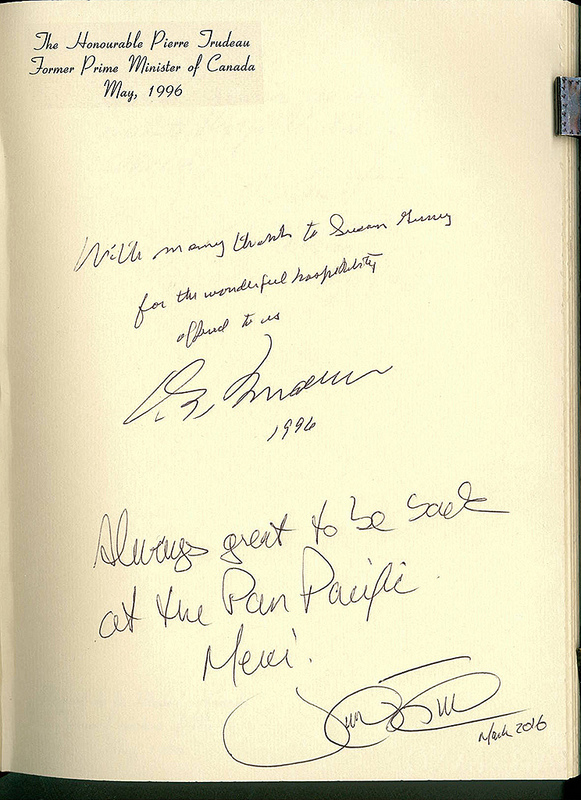 The Honourable Pierre Trudeau
Former Prime Minister of Canada
May, 1996
With many thanks to Susan
for the wonderful hospitality
offered to us
1996
Always great to be back
at the Pan Pacific.
Merci.
March 2016